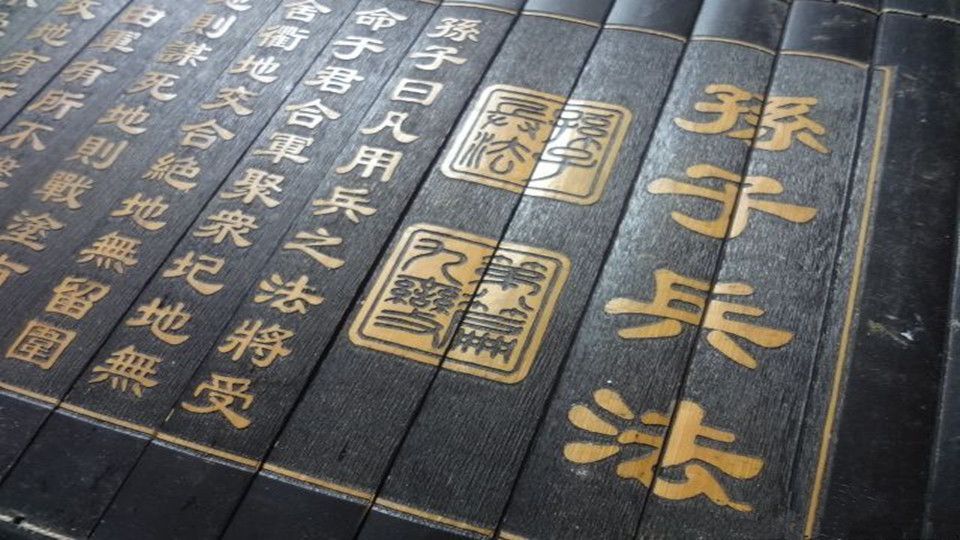 孫子兵法
孫子兵法
孫子曰凡用兵之法將受
命于君合軍聚衆圮地無
舍衢地交合絕地無留圍
地則謀死地則戰塗有
由軍有所不擊
地有所